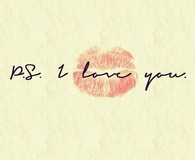 P.S. I love you.